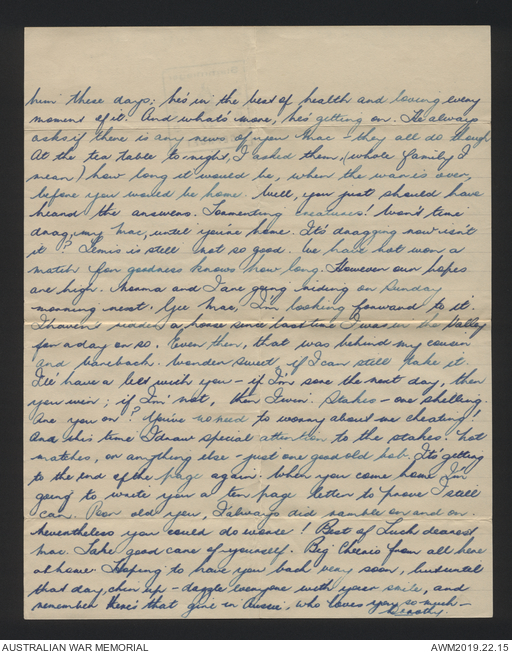 him these days; he's in the best of health and loving every
moment of it. And what's more, he's getting on. He always
asks if there is any news of you Mac - they all do though
At the tea table to-night, I asked them, (whole family I
mean) how long it would be, when the war is over,
before you would be home. Well, you just should have
heard the answers. Tormenting creatures! Won't time
drag, my Mac, until you're home. It's dragging now isn't
it? Tennis is still not so good. We have not won a
match for goodness knows how long. However our hopes
are high. Norma and I are going riding on Sunday
morning next. Gee Mac, I'm looking forward to it.
I haven't ridden a horse since last time I was in the Valley
for a day or so. Even then, that was behind my cousin
and bareback. Wonder sweet if I can still take it.
I'll have a bet with you - if I'm sore the next day, then
you win; if I'm not, then I win. Stakes - one shilling.
Are you on? You've no need to worry about me cheating!
And this time I draw special attention to the stakes. Not
matches, or anything else - just one good old bob. It's getting
to the end of the page again. When you come home I'm
going to write you a ten page letter to prove I still
can. Poor old you, I always did ramble on and on.
Nevertheless you could do worse! Best of Luck dearest
Mac. Take good care of yourself. Big Cheerio from all here
at home. Hoping to have you back very soon, but until
that day, chin up - dazzle everyone with your smile, and
remember there's that girl in Aussie, who loves you so much -
AUSTRALIAN WAR MEMORIAL
AWM2019.22.15